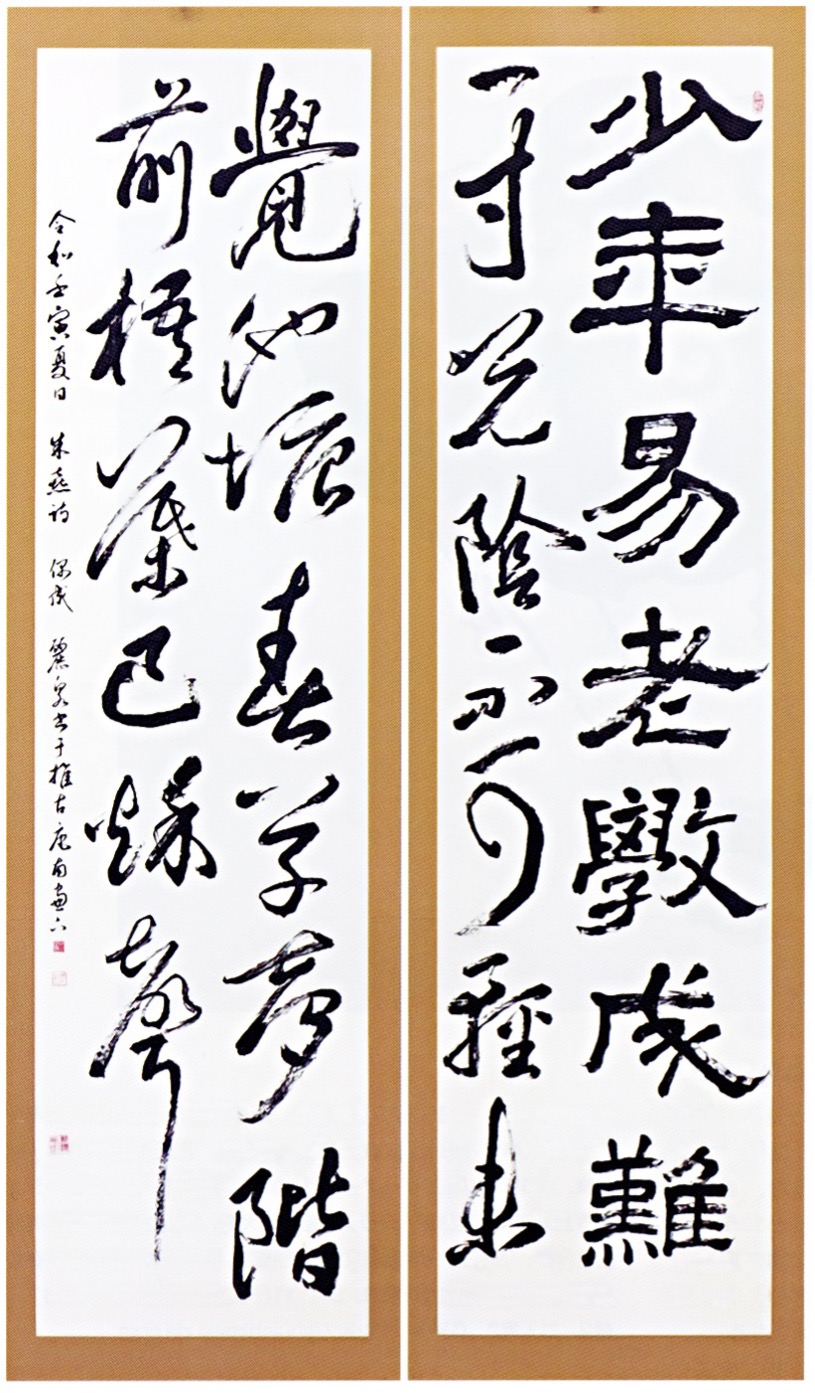 少年易老斅成難
一寸光陰不可輕未
覺池塘春草夢階
前梧葉已秌聲
令和壬寅夏日 朱熹詩 偶成 麗泉書于古庵南窗下